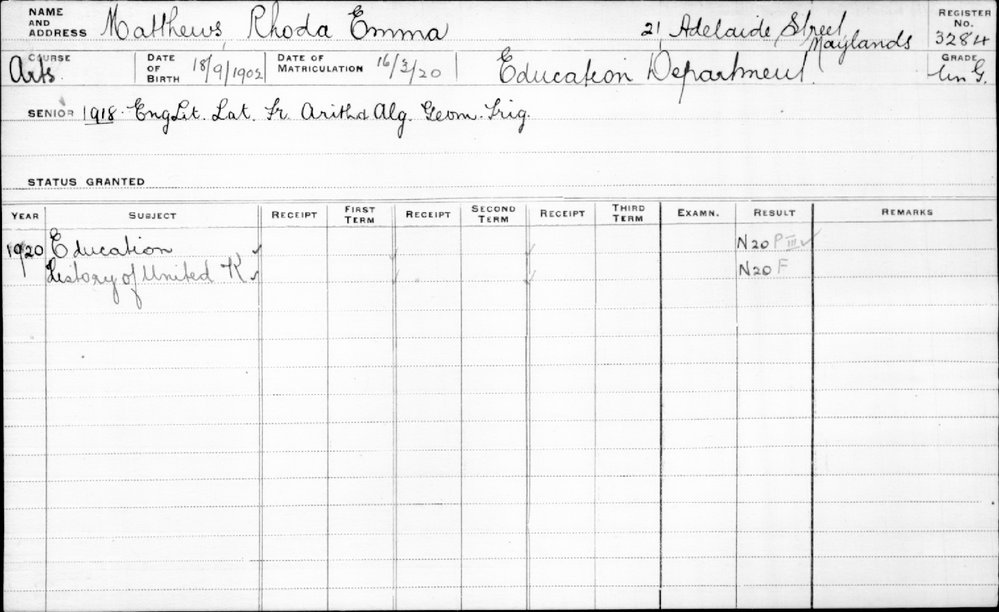 NAME AND ADDRESS Matthews, Rhoda Emma 21 Adelaide Street, Maylands REGISTER No. 3284
COURSE Arts DATE OF BIRTH 18/9/1902 DATE OF MATRICULATION 16/3/20 Education Department GRADE Un G.
SENIOR 1918. Eng Lit. Lat. Fr. Arith & Alg. Geom. Trig.
STATUS GRANTED
YEAR SUBJECT RECEIPT FIRST TERM RECEIPT SECOND TERM RECEIPT THIRD TERM EXAMN. RESULT REMARKS
1920 Education ✓ ✓ ✓ N20 P III ✓
History of United K ✓ ✓ ✓ N20 F